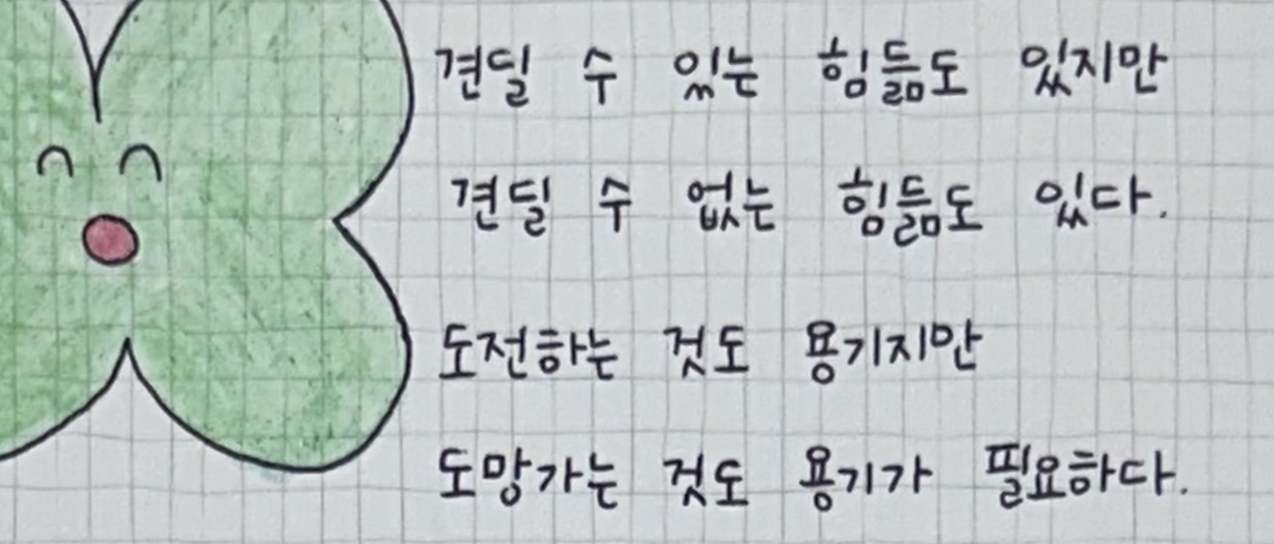 견딜 수 있는 힘듦도 있지만
견딜 수 없는 힘듦도 있다.
도전하는 것도 용기지만
도망가는 것도 용기가 필요하다.